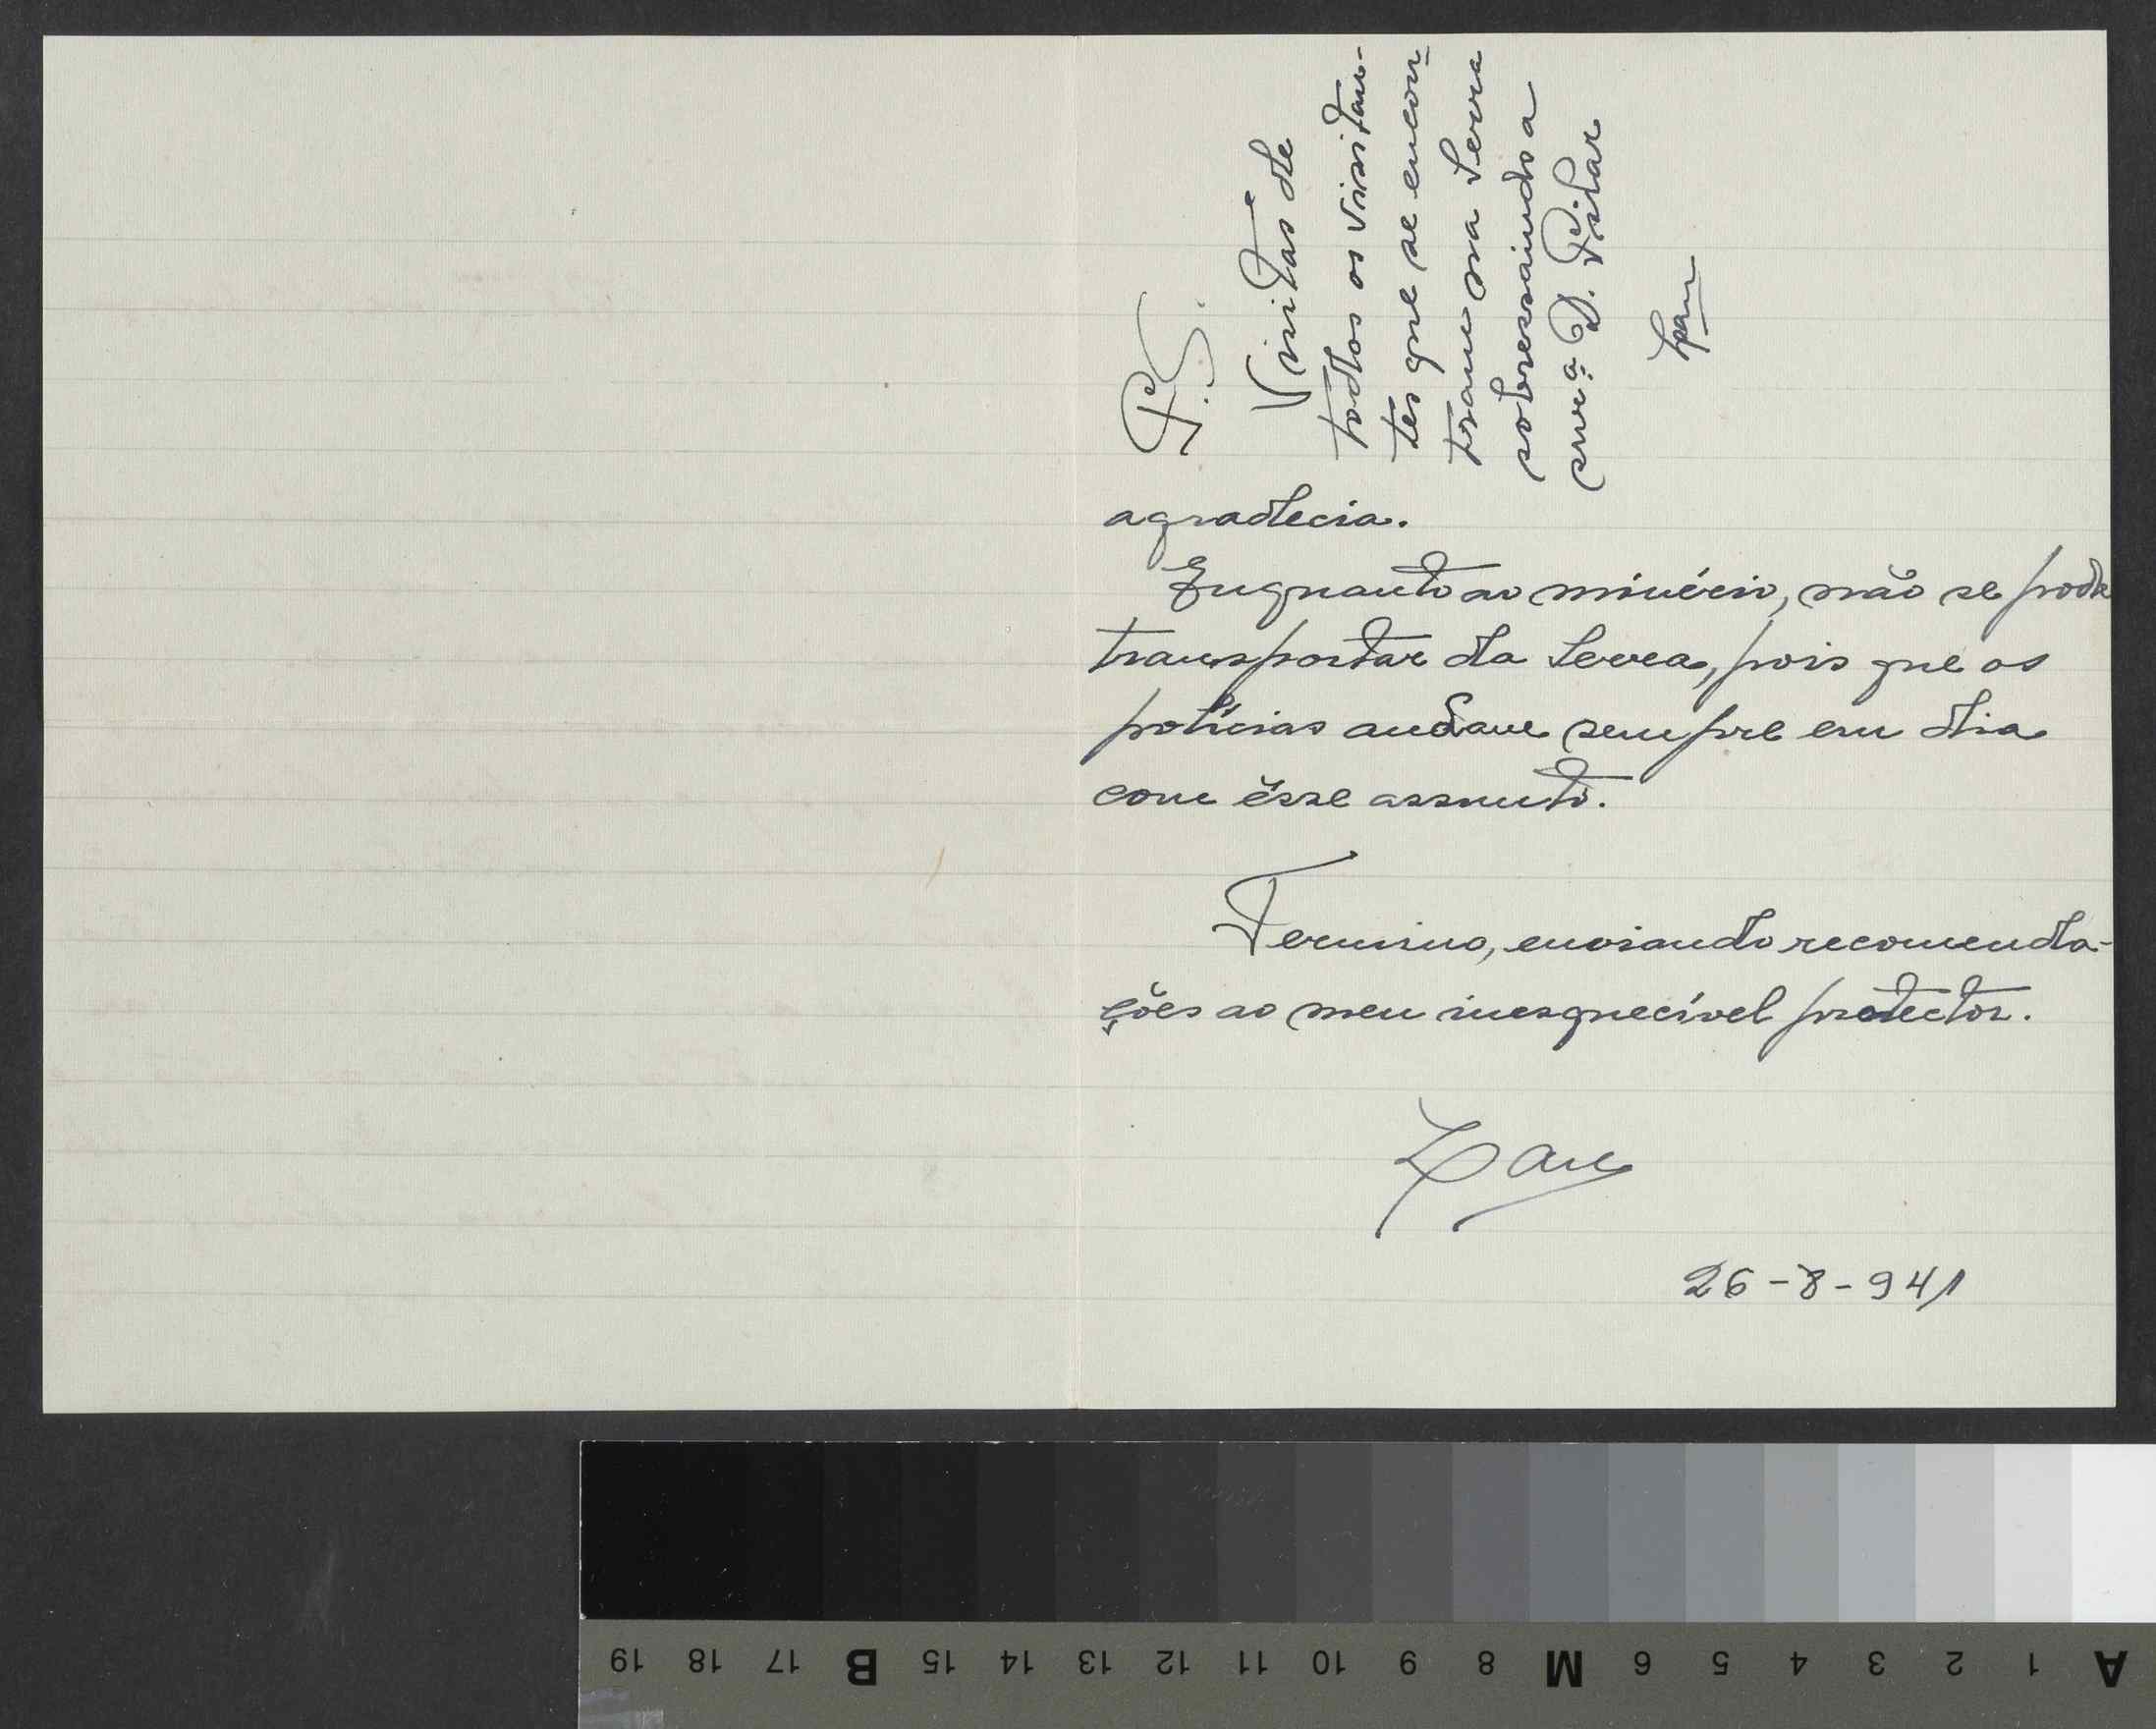 P.S.
Visitas de
todos os visitan-
tes que se encon-
tram na Serra
sobressaindo a
snr.ª D. Pilar
agradecia.
Enquanto ao minério, não se pode
transportar da Serra, pois que os
polícias andam sempre em dia
com êsse assunto.
Termino, enviando recomenda-
ções ao meu inesquecível protector.
26-8-941
19 18 17 B 15 14 13 12 11 10 9 8 M 6 5 4 3 2 1 A